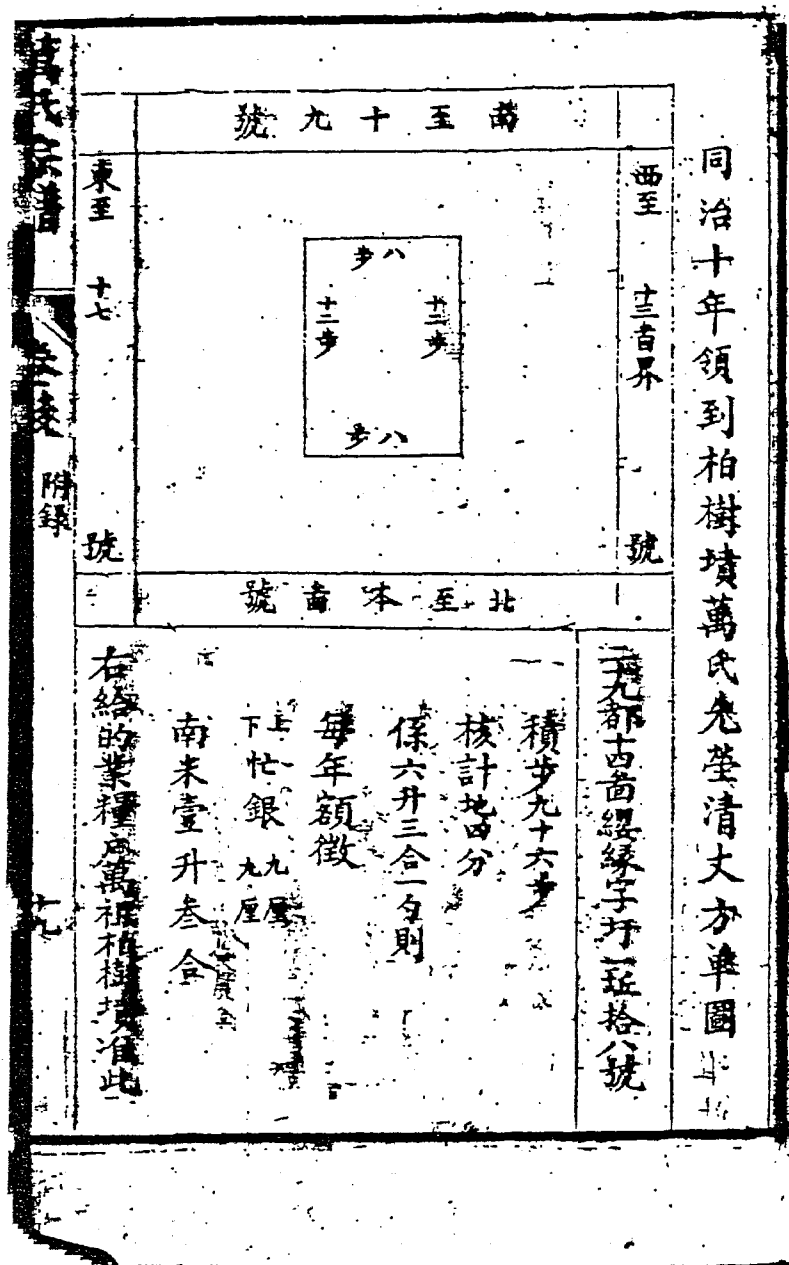 同治十年領到柏樹墳萬氏先塋清丈方單圖
南至十九號
西至 十三啚界 號
東至 十七 號
八步
十二步
十二步
八步
北至本啚號
二十九都十四啚纓緣字圩一坵拾八號
一 積步九十六步
核計地四分
係六升三合一勺則
每年額徵
上下忙銀 九厘 九厘
南米壹升叁合
右給的業糧戶萬祖柏樹墳准此
萬氏宗譜
附錄
十九